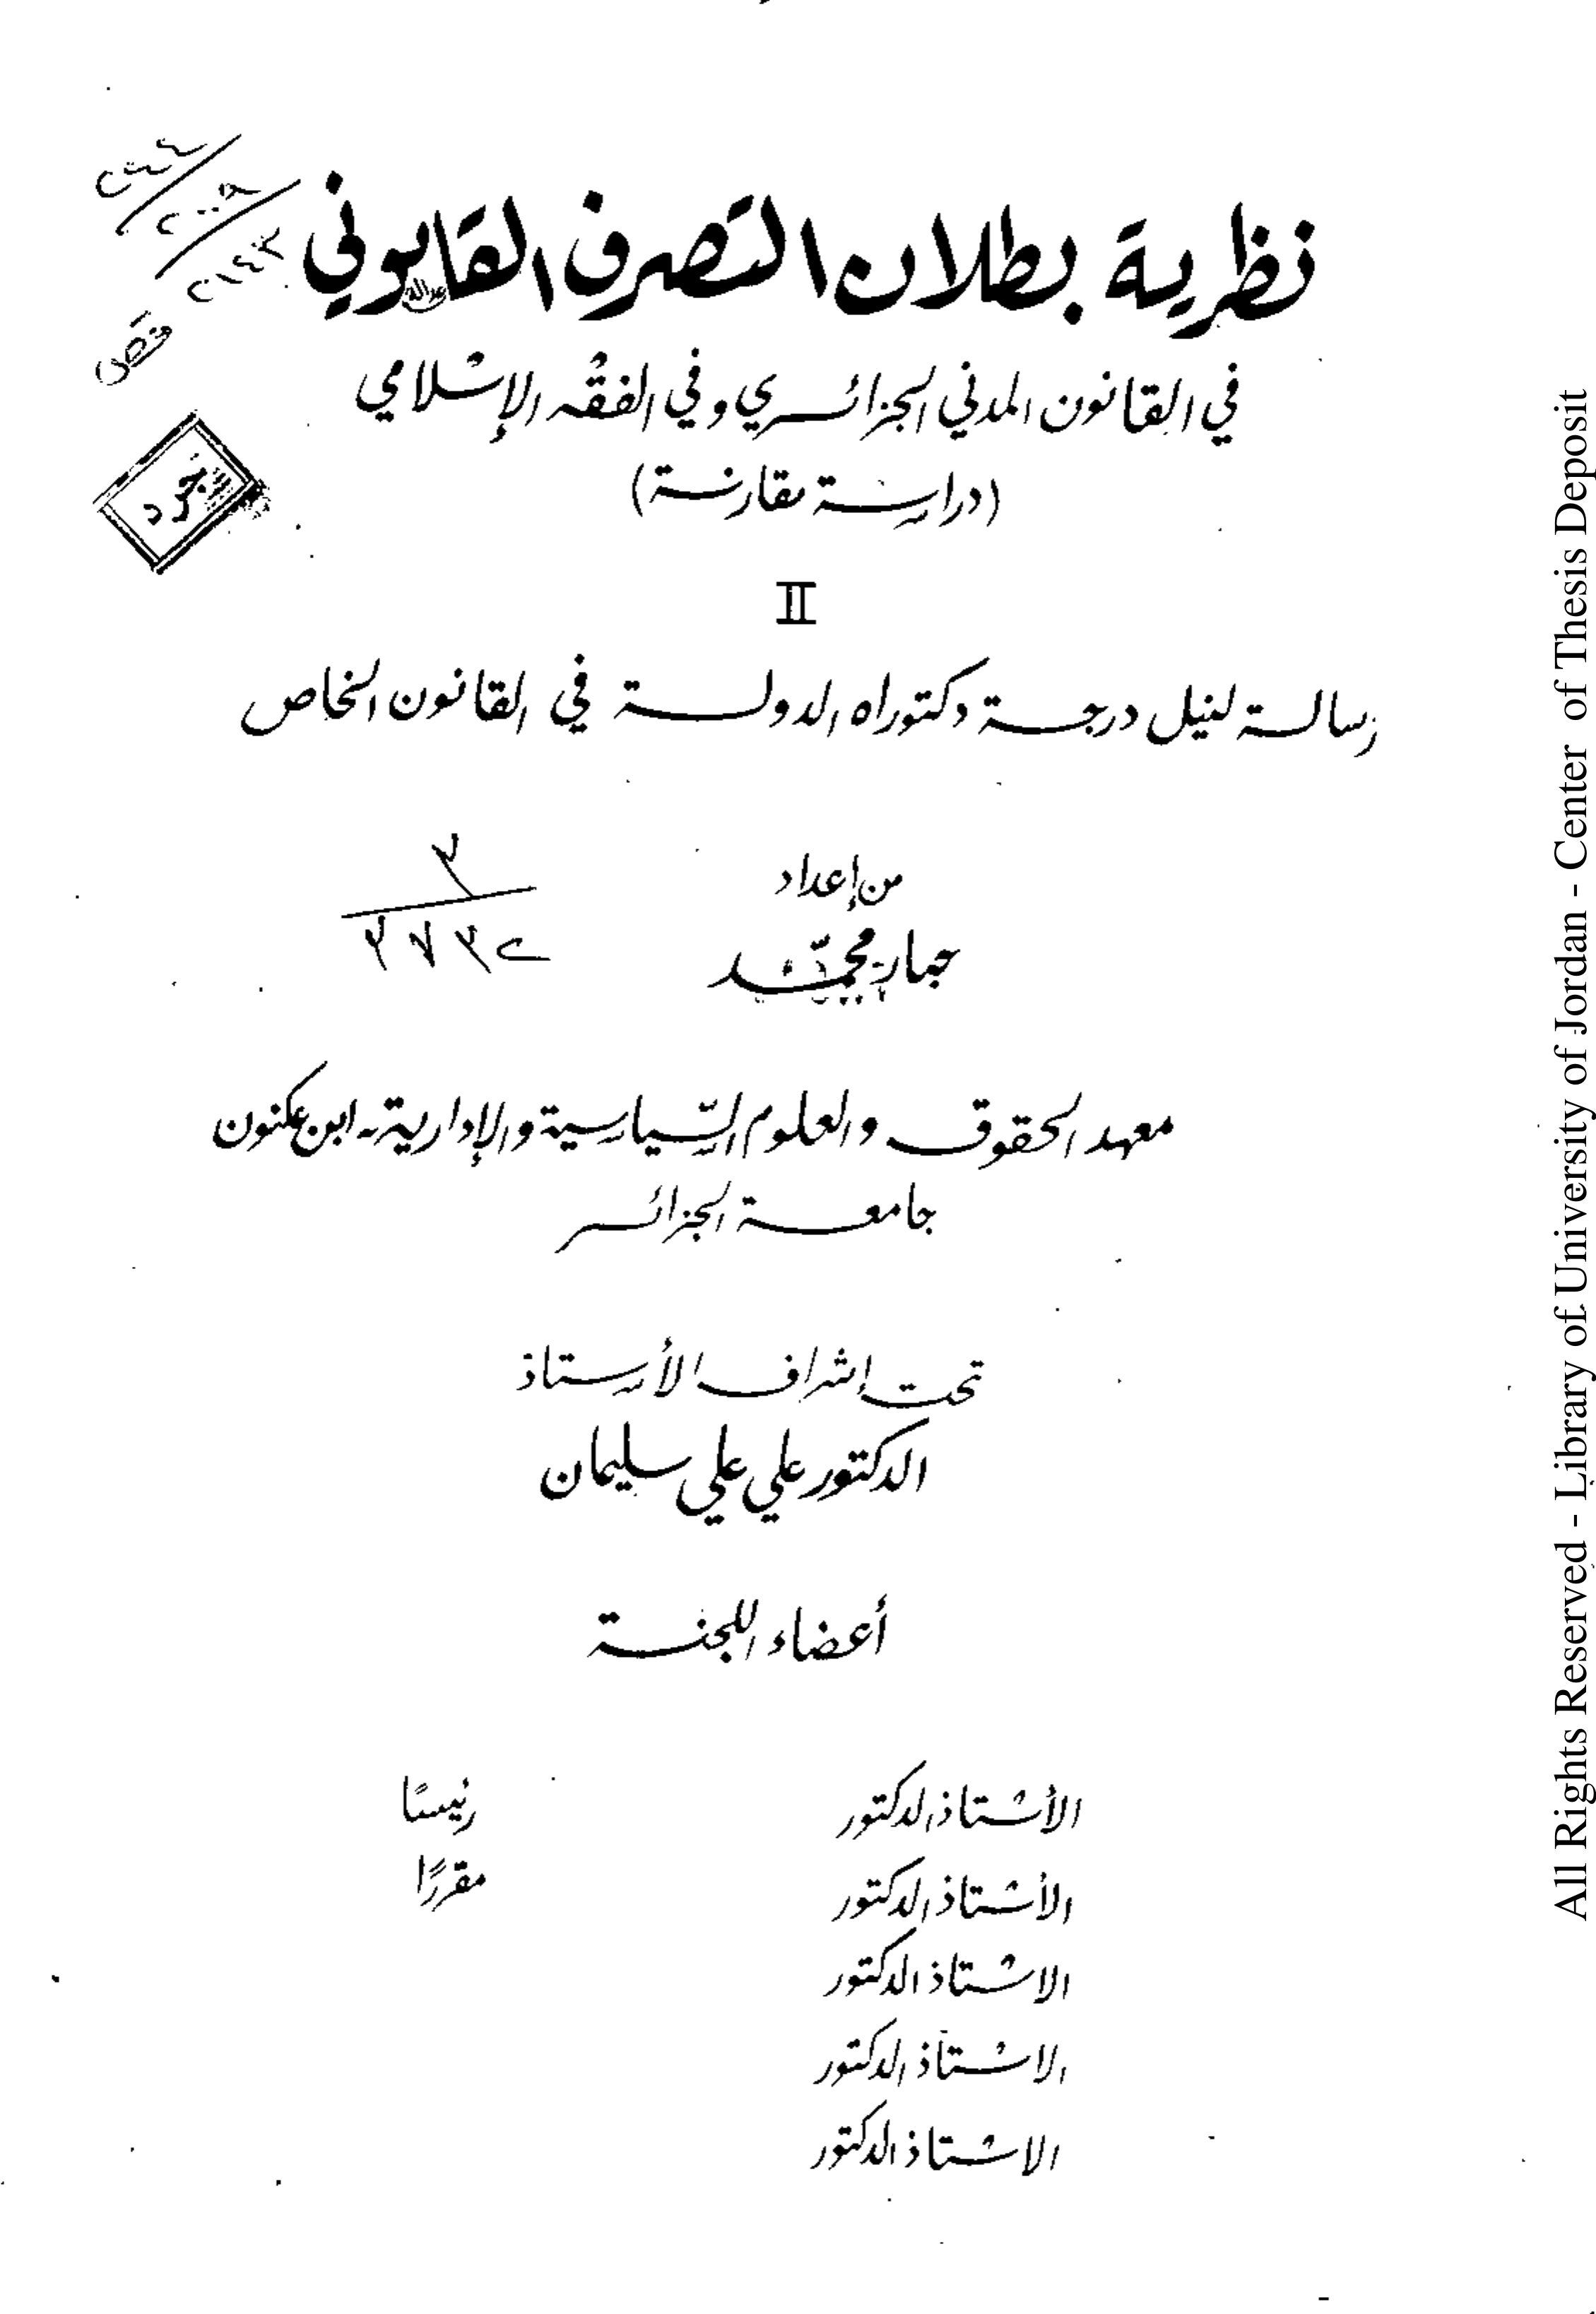 نظرية بطلان التصرف القانوني
في القانون المدني الجزائري وفي الفقه الإسلامي
(دراسة مقارنة)
II
رسالة لنيل درجة دكتوراه الدولة في القانون الخاص
من إعداد
جبار محمد
٣
٣٧٣٢
معهد الحقوق والعلوم السّياسية والإدارية - ابن عكنون
جامعة الجزائر
تحت إشراف الأستاذ
الدكتور علي علي سليمان
أعضاء اللجنة
الأستاذ الدكتور رئيسًا
الأستاذ الدكتور مقررًا
الاستاذ الدكتور
الاستاذ الدكتور
الاستاذ الدكتور
جرد
All Rights Reserved - Library of University of Jordan - Center of Thesis Deposit